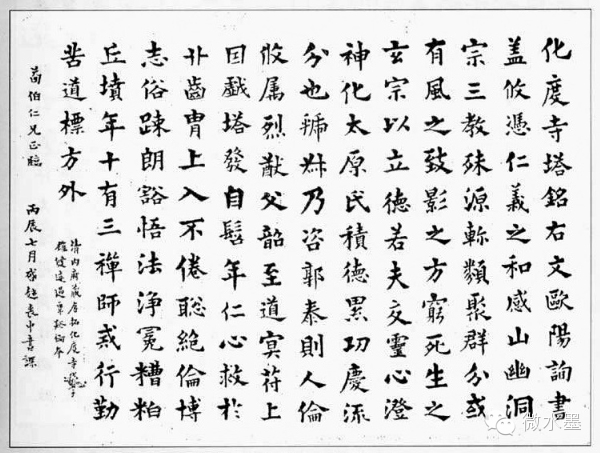 化度寺塔銘右文歐陽詢書
盖攸憑仁義之和感山幽洞
宗三教殊源斬類聚群分或
有風之致影之方窮死生之
玄宗以立德若夫交靈心澄
神化太原氏積德累功慶流
分也號叔乃咨郭泰則人倫
攸属烈猷父韶至道冥苻上
田戯塔發自髫年仁心救於
丱齒冑上入不倦聡絶倫博
志俗踈朗谿悟法浄冕糟粕
丘墳年十有三禪師戒行勤
苦道標方外
清内府藏唐拓化度寺
伯仁兄正臨 丙辰七月 書課
微水墨